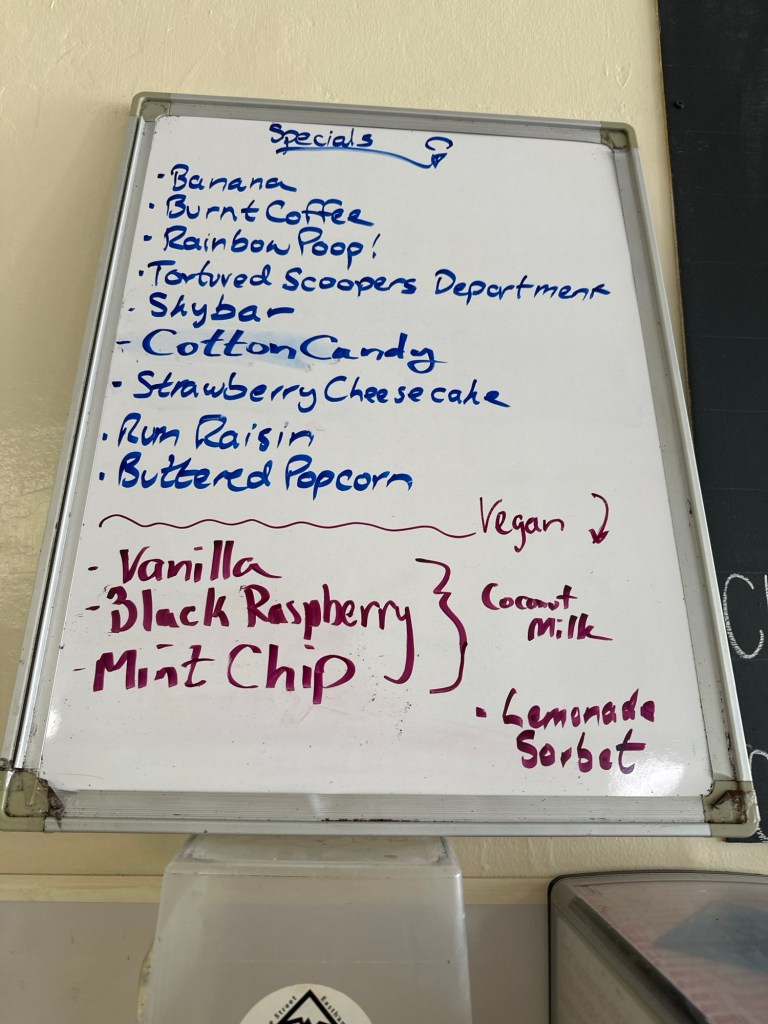 Specials
· Banana
· Burnt Coffee
· Rainbow Poop!
· Tortured Scoopers Department
· Skybar
- Cotton Candy
· Strawberry Cheesecake
· Rum Raisin
· Buttered Popcorn
Vegan
- Vanilla
- Black Raspberry
- Mint Chip
Coconut
Milk
· Lemonade
Sorbet
Street